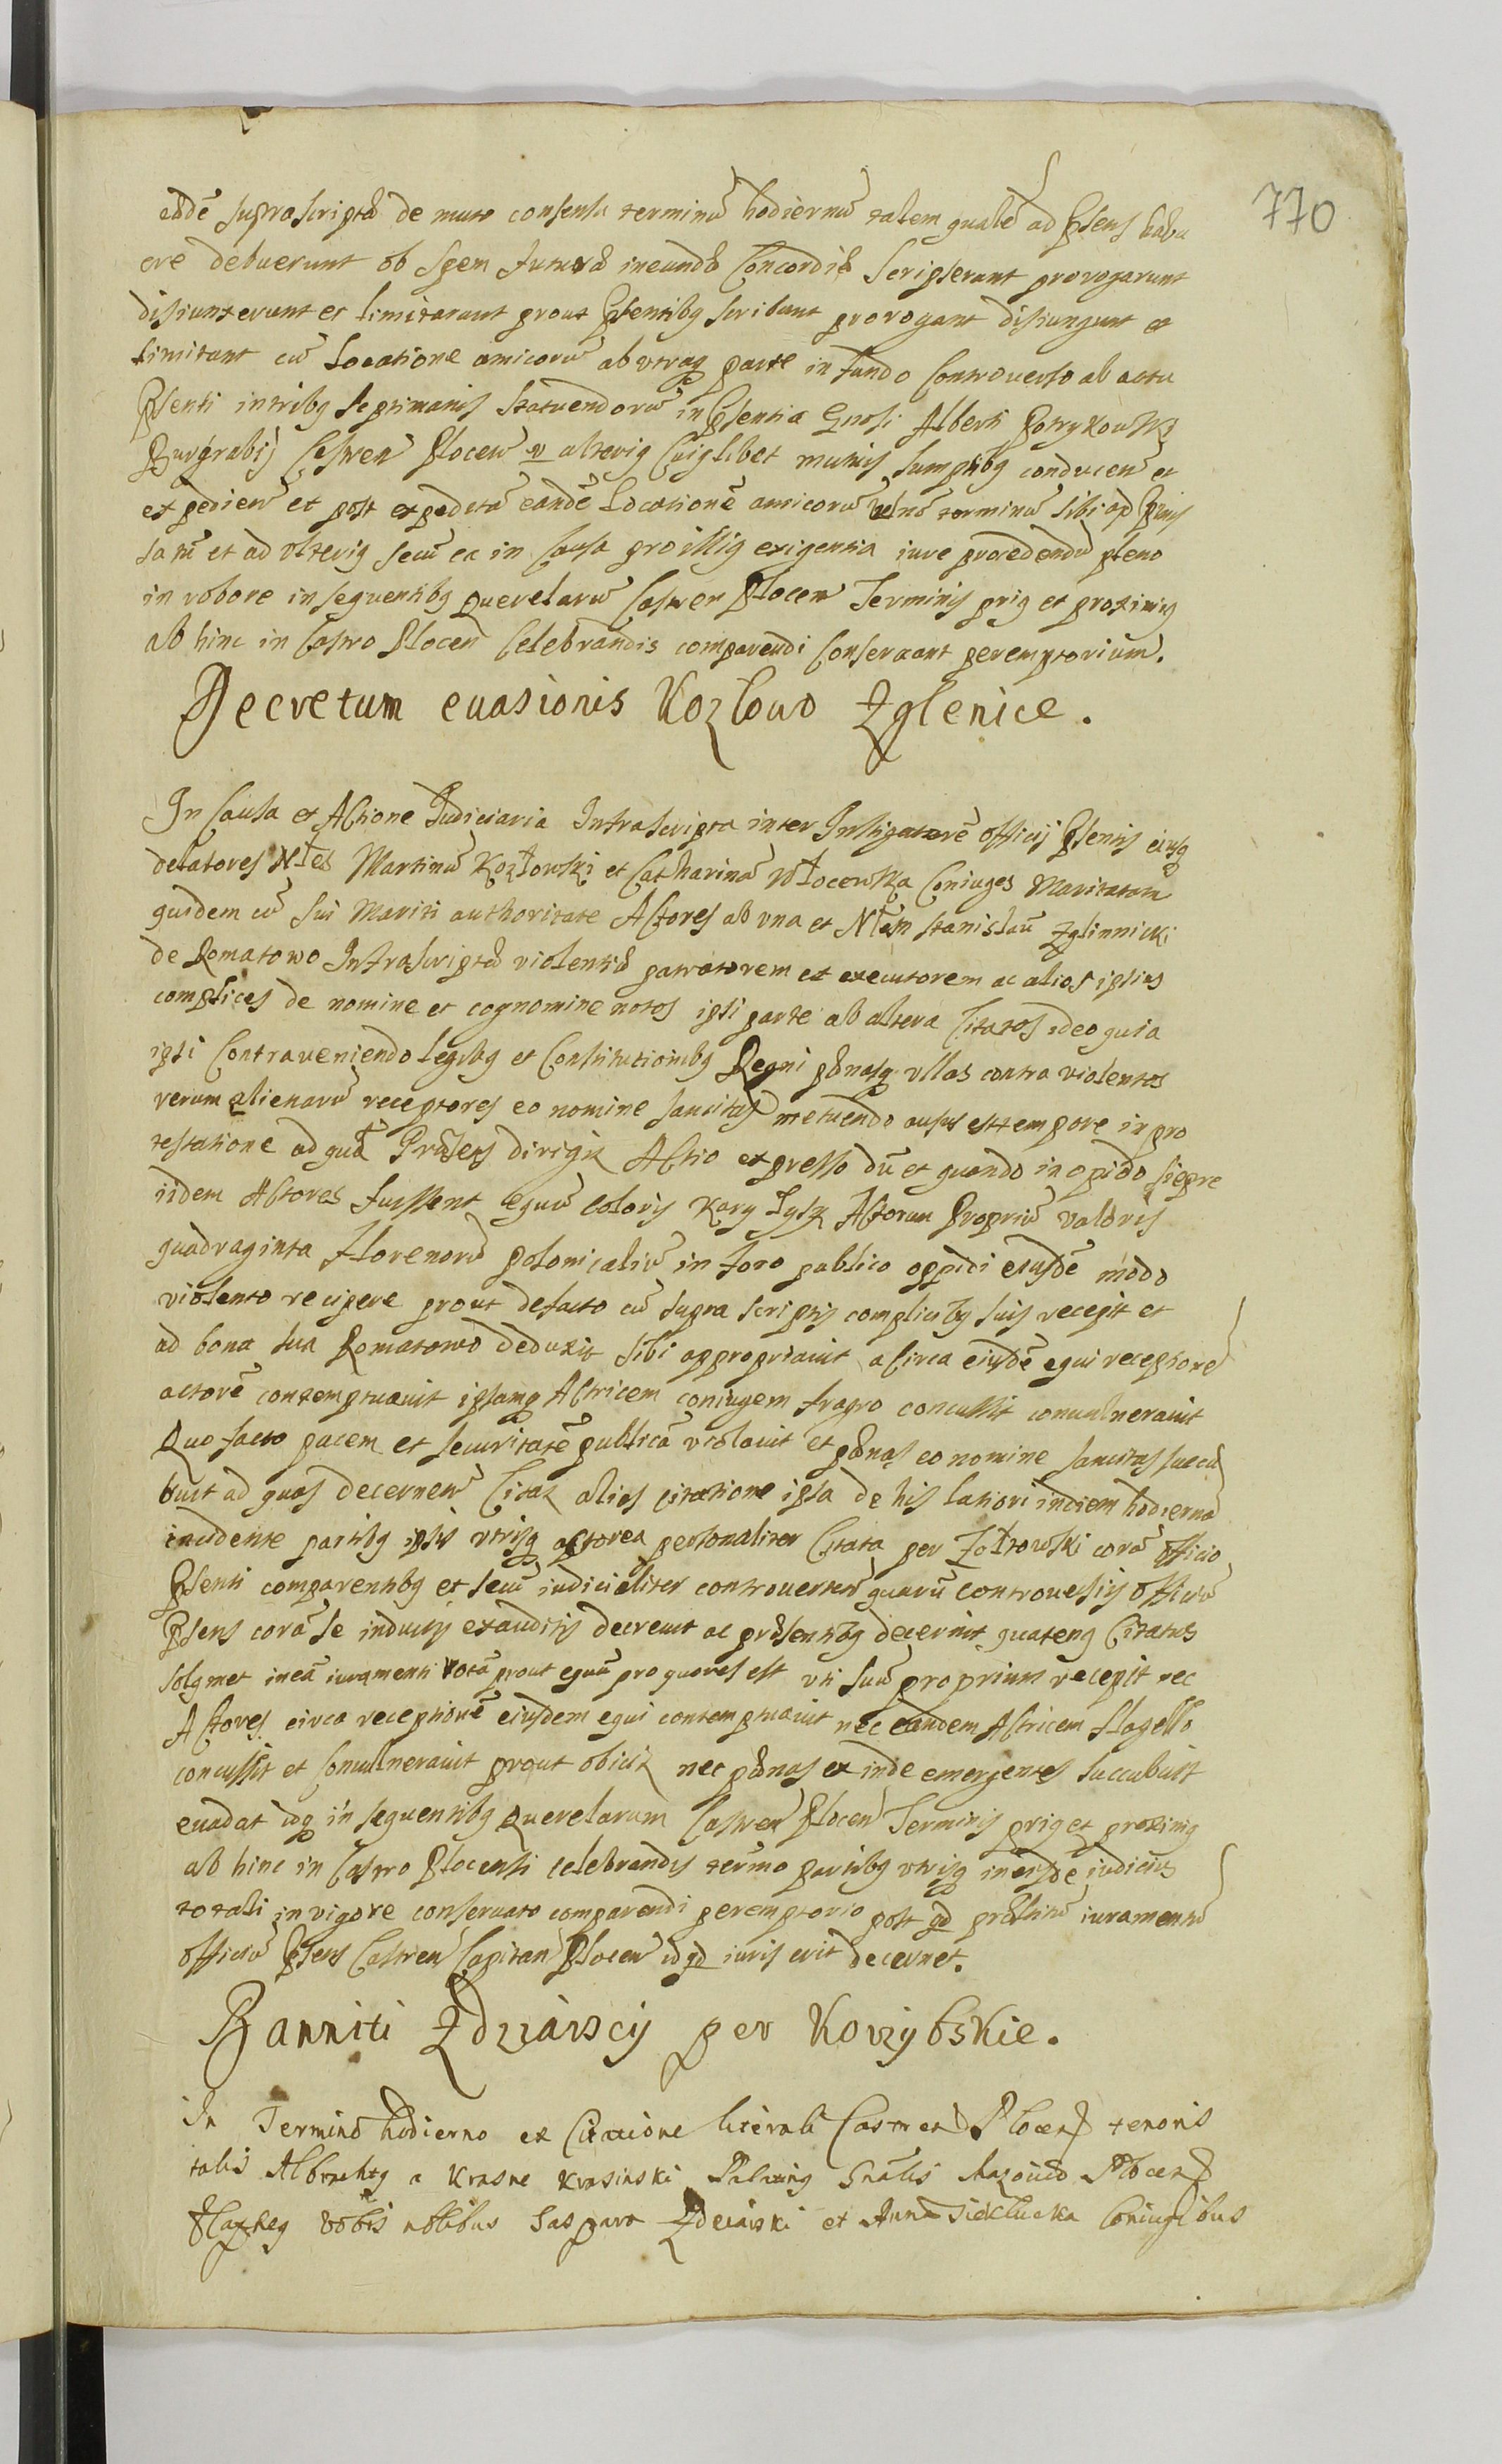 770
eadē suprascripta de mutuo consensu terminū hodiernū talem qualē ad p̄sens habu
ere debuerunt ob spem futura ineunda Concordia scripserant prorogarunt
disiunxerunt et limitarunt prout p̄sentibꝫ scribunt prorogant disiungunt et
limitant cū locatione amicorū ab utraqꝫ parte in fundo controverso ab actu
p̄senti in tribꝫ septimanis statuendorū in p̄sentia Gnosi Alberti Potrykowski
Burgrabij Castren Plocen v alteriꝫ cuiꝫlibet mutuis sumptibꝫ conducen et
expedien et post expeditā eandē locationē amicorū vel nō terminū sibi ad p̄mis
sam et ad ulteriꝫ secū ea in causa pro illiꝫ exigentia iure procedendū pleno
in robore in sequentibꝫ Querelarū Castren Plocen Terminis priꝫ et proximis
ab hinc in Castro Plocen celebrandis comparendi conservant peremptorium.
Decretum evasionis Kozłowo Zglenice.
In Causa et Actione Iudiciaria Infrascripta inter Instigatorē officij p̄sentis eiusqꝫ
delatores Nles Martinū Kozłowski et Catharinā Włocewska Coniuges Maritatam
quidem cū sui Mariti authoritate Actores ab una et Nlem Stanislaū Zglinnicki
de Romatowo Infrascripta violentia patratorem et executorem ac alios ipsius
complices de nomine et cognomine notos ipsi parte ab altera Citatos ideo quia
ipsi Contraveniendo legibꝫ et Constitutionibꝫ Regni pœnasqꝫ ullas contra violentos
rerum alienarū receptores eo nomine sancitas metuendo ausus est tempore in pro
testatione ad quā Præsens dirigit Actio expresso dū et quando in opido Sieprc
iidem Actores fuissent equū coloris kary łysy Actorum Propriū valoris
quadraginta Florenorū polonicaliū in foro publico oppidi eiusdē modo
violento recipere prout de facto cū supra scriptis complicibꝫ suis recepit et
ad bona sua Romatowo deduxit sibi appropriavit a circa eiusdē equi receptionē
actorē contemptuavit ipsamqꝫ Actricem coniugem flagro concussit convulneravit
Quo facto pacem et securitatē publicā violavit et pœnas eo nomine sancitas succu
buit ad quas decernen Citat alias citatione ipsa de his latiori in diem hodiernā
incidente partibꝫ ipsis utrisqꝫ actorea personaliter Citata per Zołtowski corā officio
p̄senti comparentibꝫ et secū iudicialiter controverten quarū controversijs officiū
p̄sens corā se inductis exauditis decrevit ac præsentibꝫ decernit quatenꝫ Citatus
solꝫmet in eā iuramenti rotā prout equū pro quo res est uti suū proprium recepit nec
Actores circa receptionē eiusdem equi contemptuavit nec eandem Actricem flagello
concussit et convulneravit prout obicit nec pœnas ex inde emergentes succubuit
evadat idqꝫ in sequentibꝫ Querelarum Castren Plocen Terminis priꝫ et proximis
ab hinc in Castro Plocensi celebrandis termo partibꝫ utrisqꝫ in eisdē iudicijs
totali in vigore conservato comparendi peremptorio post qd præstitū iuramentū
officiū p̄sens Castren Capitan Plocen id qd iuris erit decernet.
Banniti Zdziarscy per Korzybskie.
In Termino hodierno ex Citatione literali Castren Plocen tenoris
talis Albrachtꝫ a Krasne Krasinski Palatinꝫ Gnalis Mazovia Plocen
Capneꝫ vobis nobilibus Gaspara Zdziarski et Anna Sieklucka Coniugibus